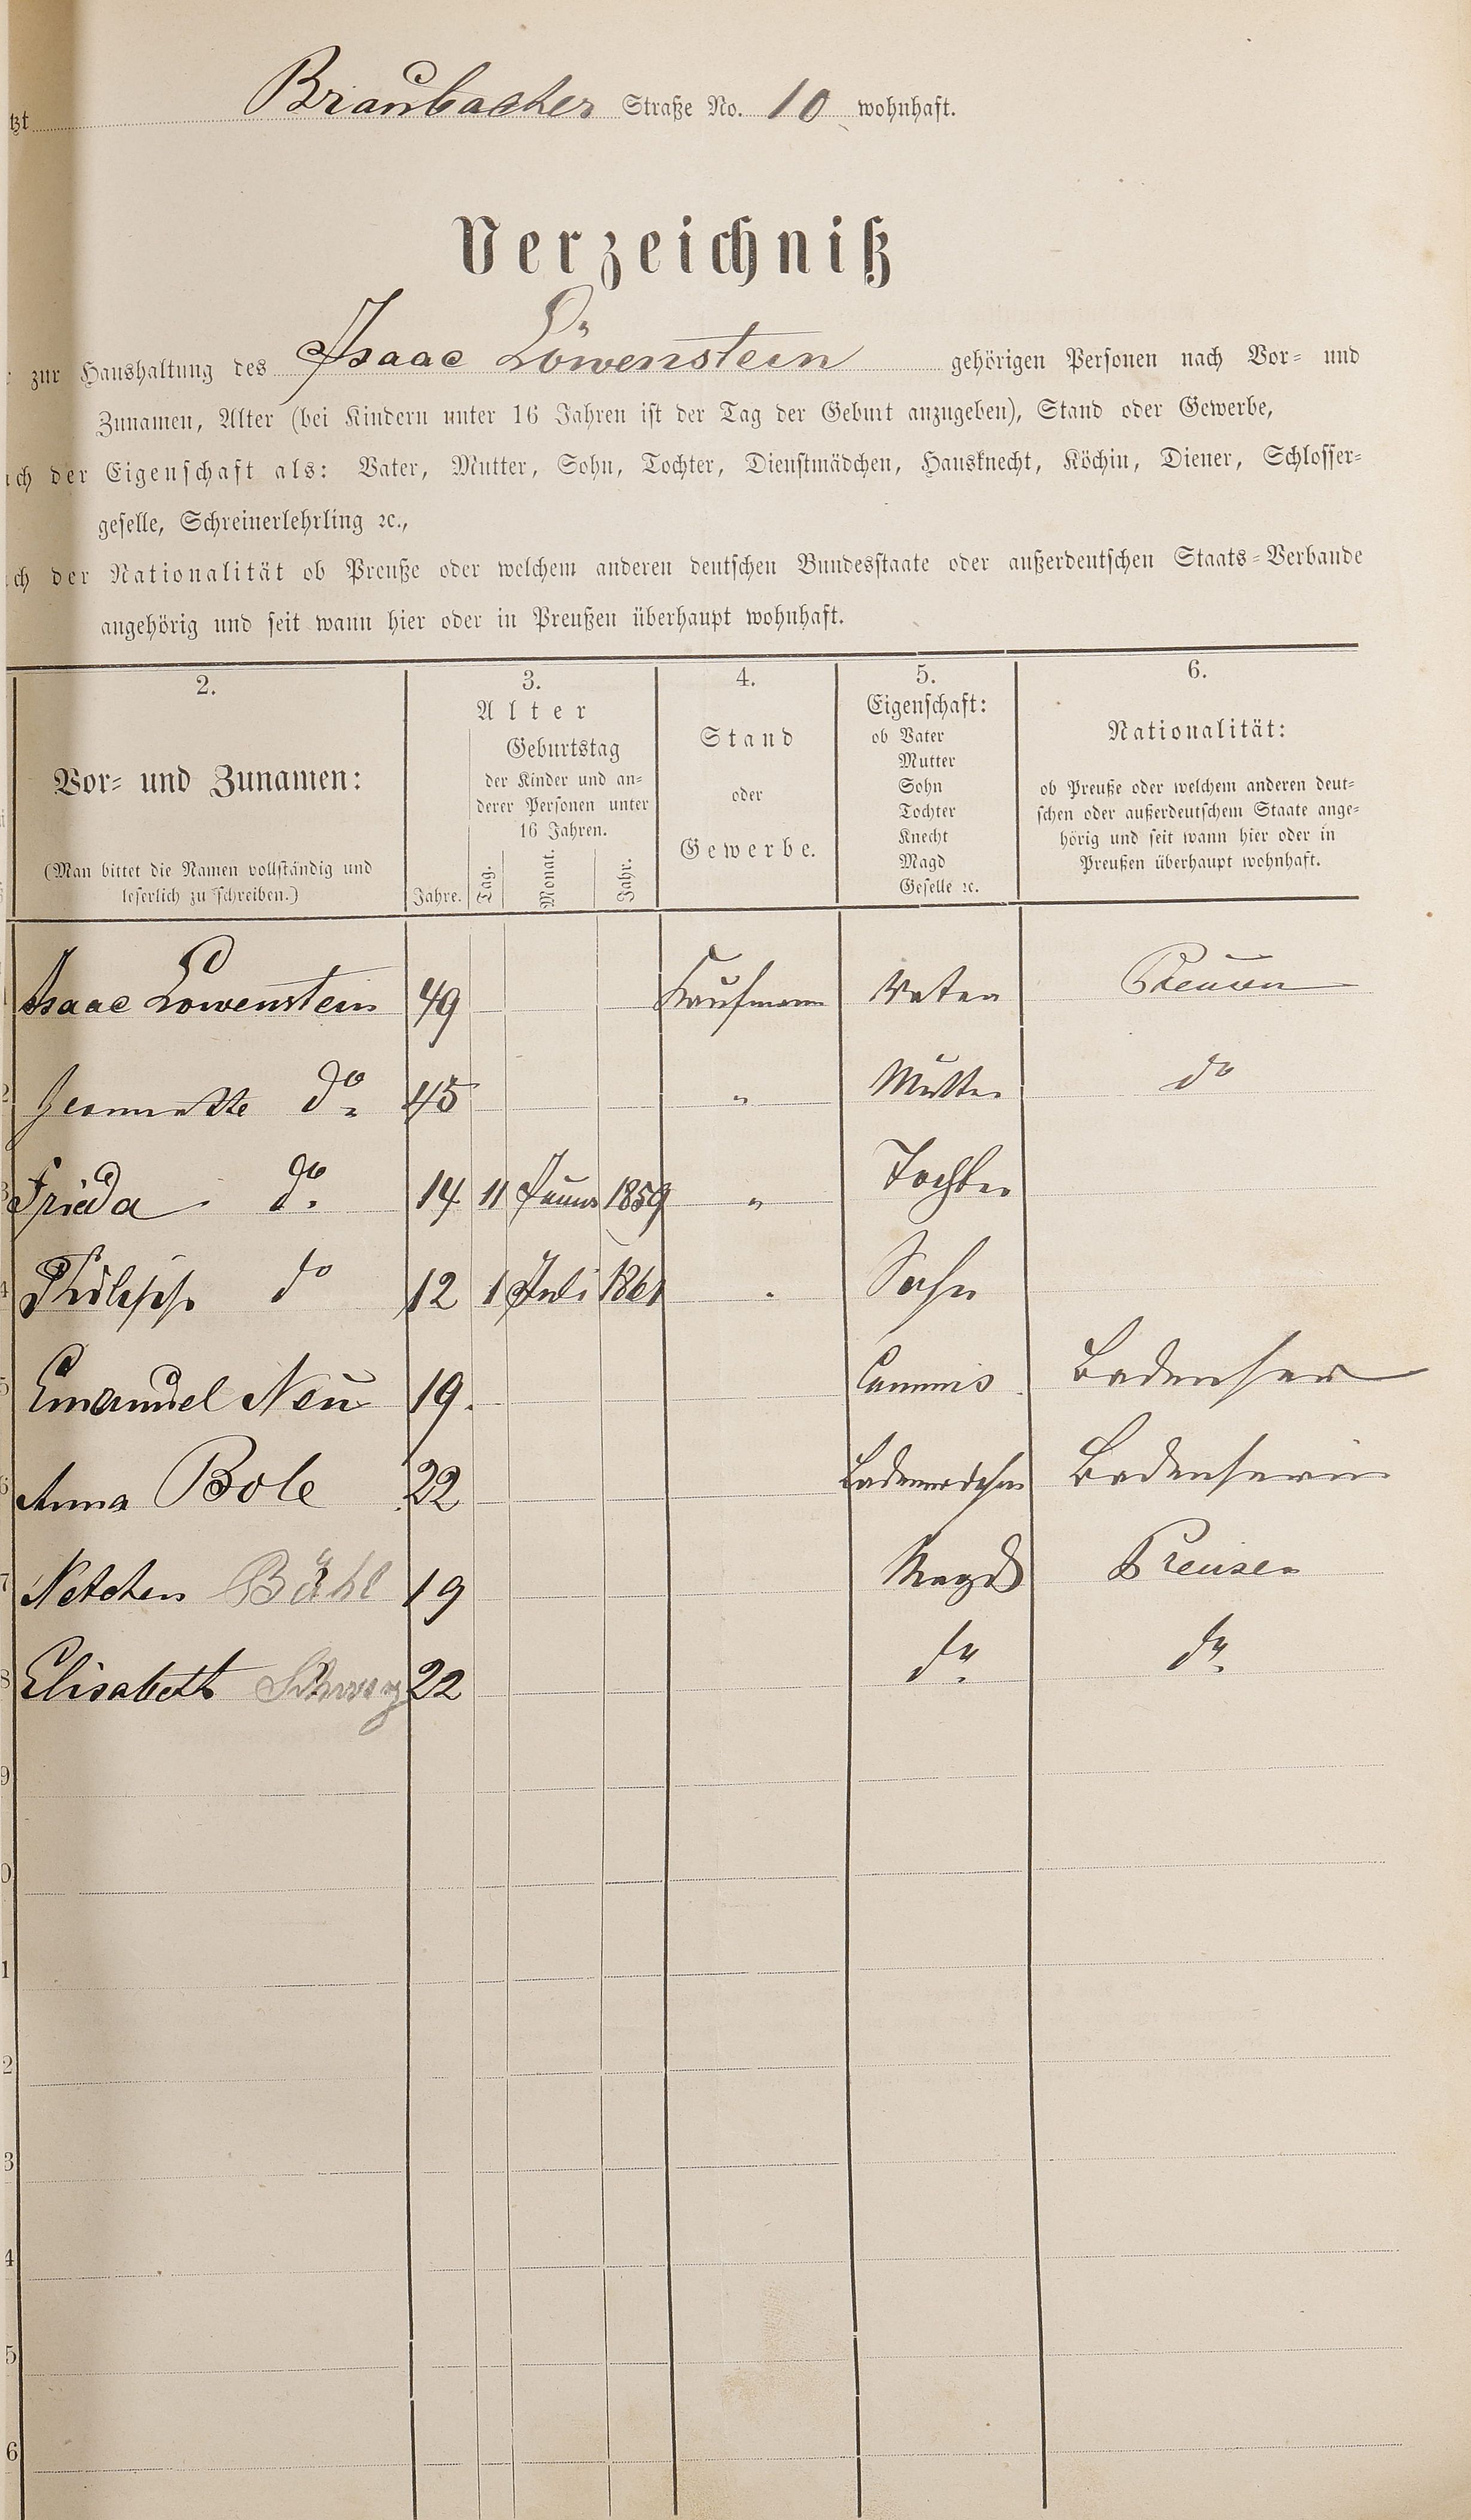 tzt Braubacher Straße No. 10 wohnhaft.
Verzeichniß
zur Haushaltung des Isaac Löwenstein gehörigen Personen nach Vor- und
Zunamen, Alter (bei Kindern unter 16 Jahren ist der Tag der Geburt anzugeben), Stand oder Gewerbe,
ch der Eigenschaft als: Vater, Mutter, Sohn, Tochter, Dienstmädchen, Hausknecht, Köchin, Diener, Schlosser-
geselle, Schreinerlehrling ꝛc.,
ch der Nationalität ob Preuße oder welchem anderen deutschen Bundesstaate oder außerdeutschen Staats-Verbande
angehörig und seit wann hier oder in Preußen überhaupt wohnhaft.
2.
Vor- und Zunamen:
(Man bittet die Namen vollständig und
leserlich zu schreiben.)
3.
Alter
Jahre.
Geburtstag
der Kinder und an-
derer Personen unter
16 Jahren.
Tag. Monat. Jahr.
4.
Stand
oder
Gewerbe.
5.
Eigenschaft:
ob Vater
Mutter
Sohn
Tochter
Knecht
Magd
Geselle ꝛc.
6.
Nationalität:
ob Preuße oder welchem anderen deut-
schen oder außerdeutschem Staate ange-
hörig und seit wann hier oder in
Preußen überhaupt wohnhaft.
Isaac Lowenstein 49 Kaufmann Vater
2 Jeannette do 45 " Mutter do
3 Frieda do 14 11 1859 " Tochter
4 Philipp do 12 1 Juli 1861 " Sohn
5 Emanuel Neu 19. Commis Badenser
6 Anna Bole 22 Ladenmädchen Badenserin
7 Netchen Bühl 19 Magd Preusen
8 Elisabeth 22 do do
9
0
1
2
3
4
5
6